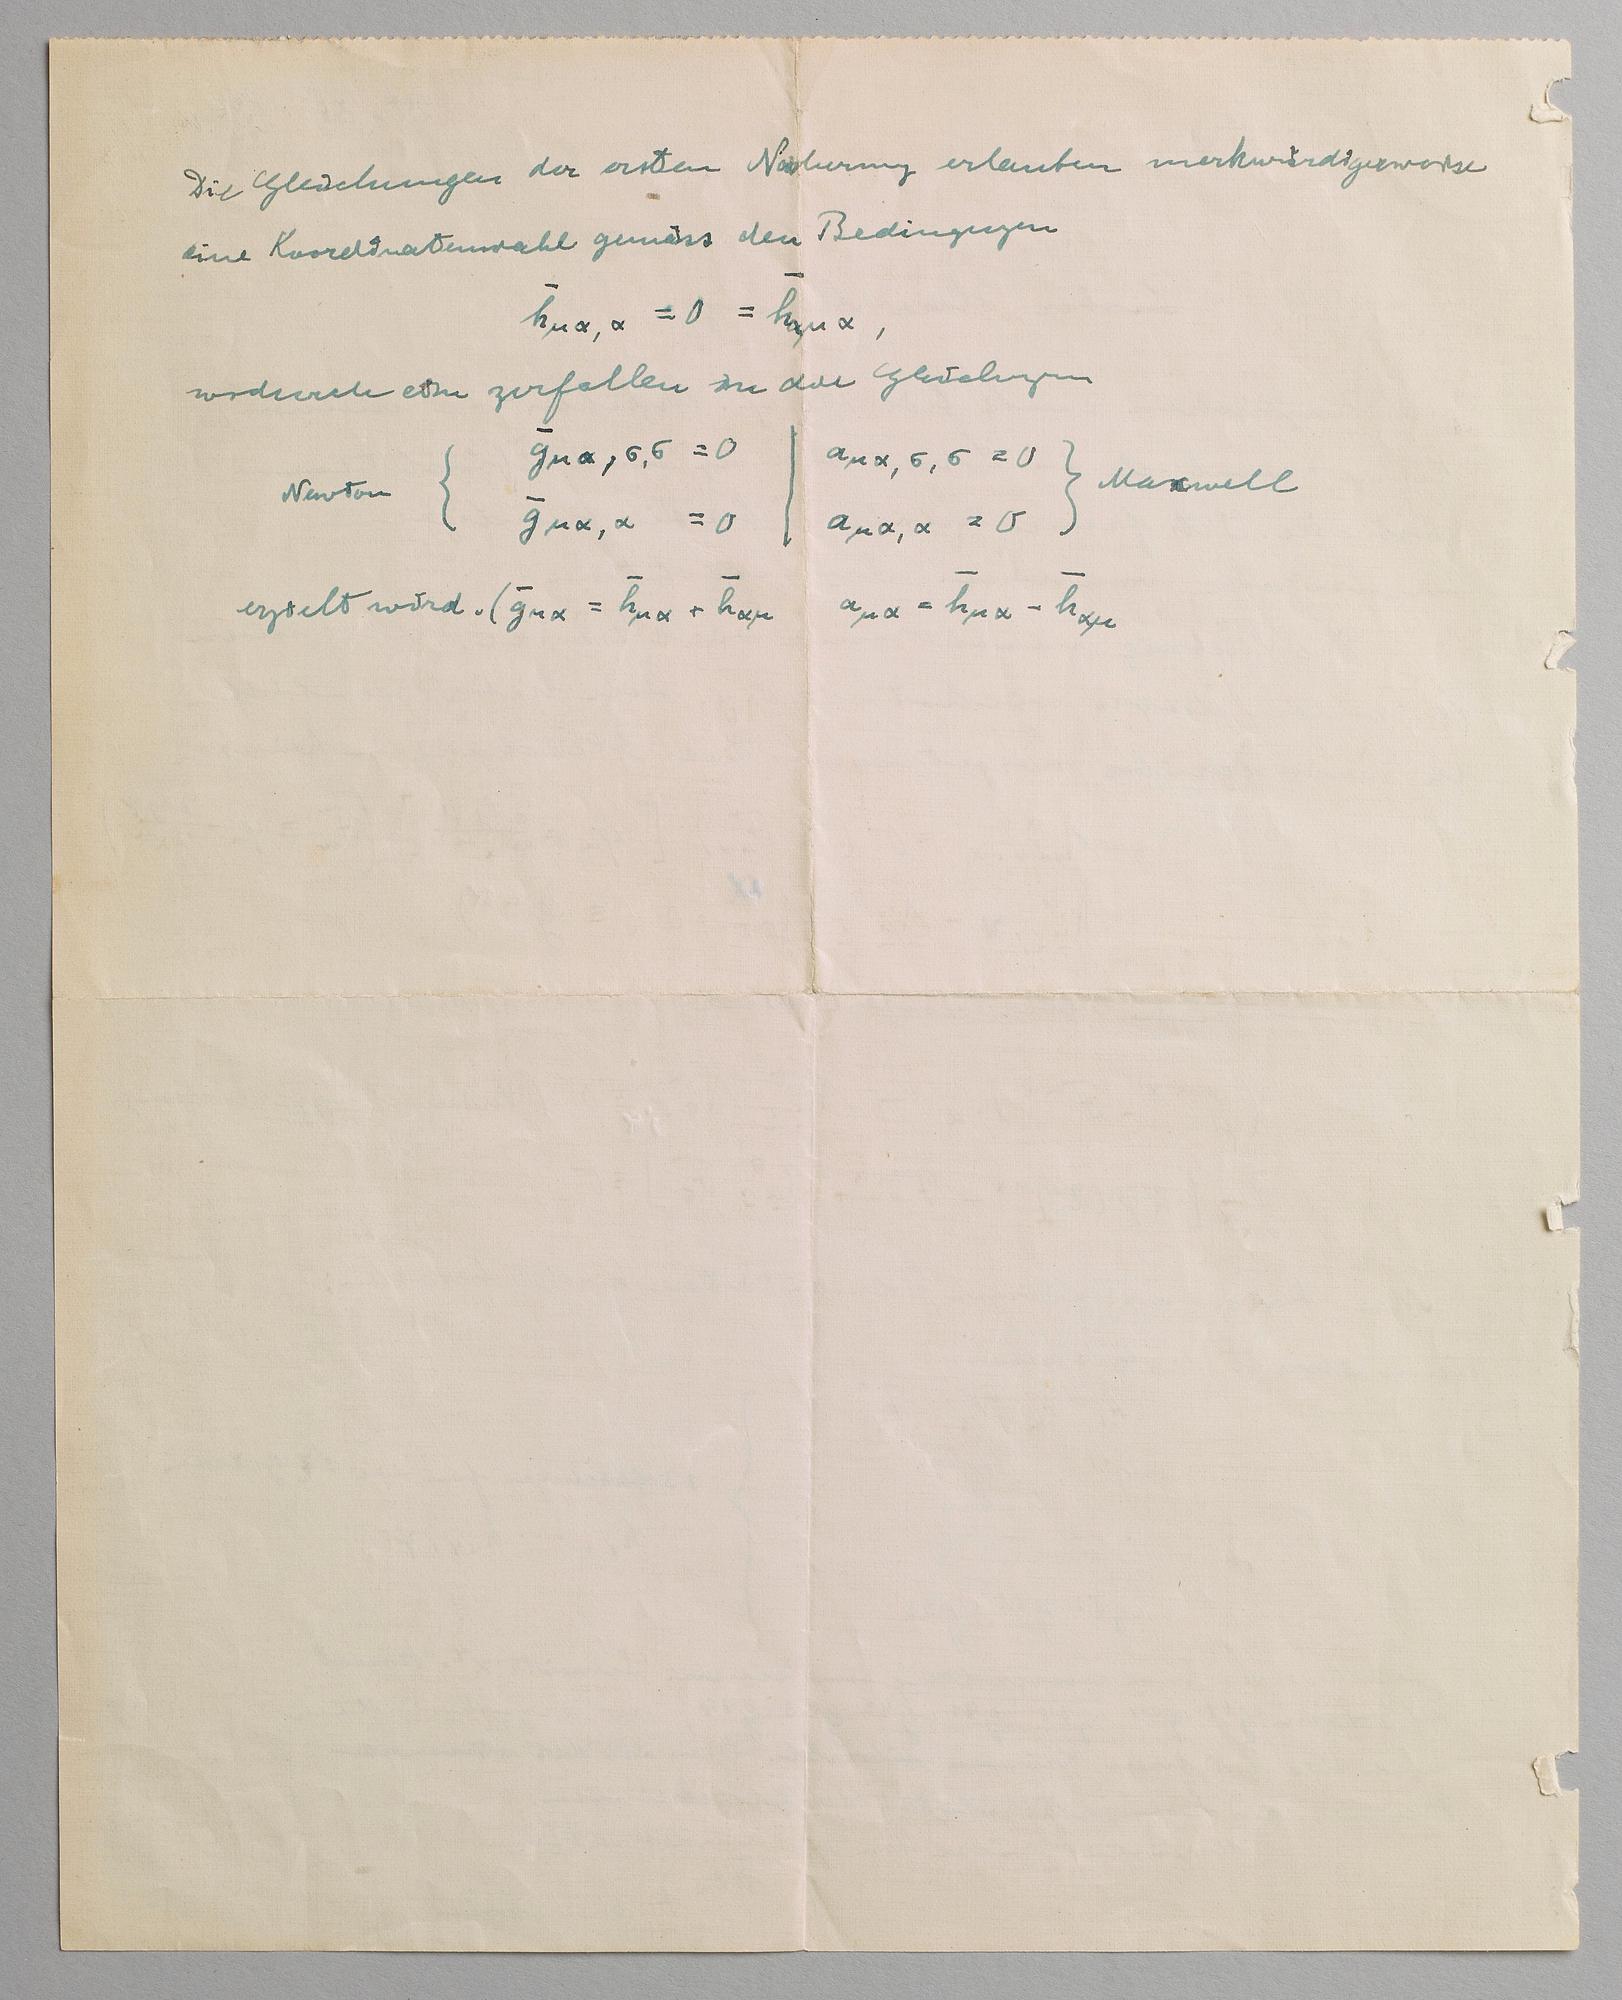 Die Gleichungen der ersten Näherung erlauben merkwürdigerweise
eine Koordinatenwahl gemäss den Bedingungen
h̄μα,α = 0 = h̄αμα,
wodurch ein zerfallen in die Gleichungen
Newton { ḡμα,σ,σ = 0 | aμα,σ,σ = 0 } Maxwell
ḡμα,α = 0 | aμα,α = 0
erzielt wird. (ḡμα = h̄μα + h̄αμ aμα = h̄μα - h̄αμ